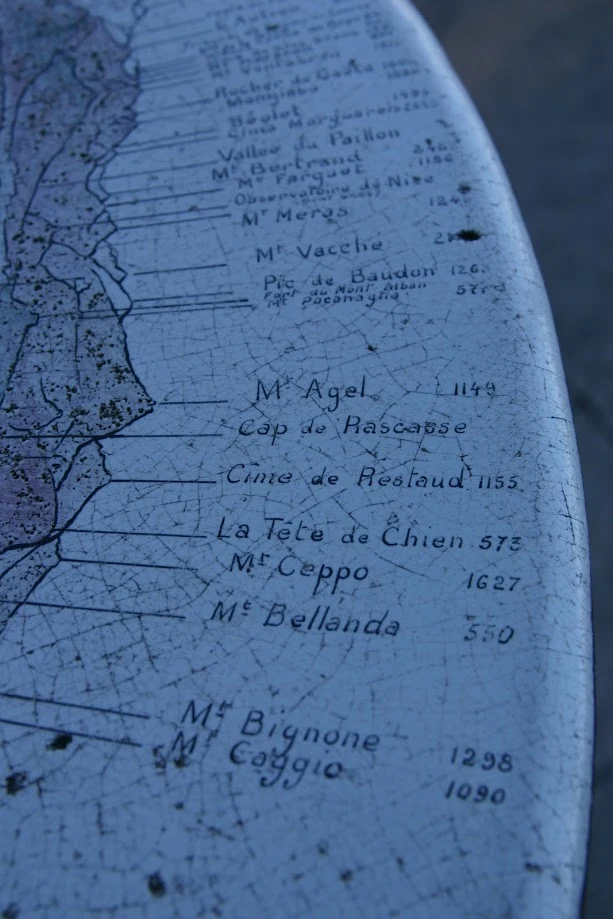 Rocher de
Mangiabo
Béolet
Cime Marguareis
Vallée du Paillon
Mt Bertrand
Mt Farguet 1186
Observatoire de Nice
Mt Meras 124
Mt Vacche
Pic de Baudon 126
Fort du Mont Alban
Mt Pacanaglia 577
Mt Agel 1149
Cap de Rascasse
Cime de Restaud 1155
La Tête de Chien 573
Mt Ceppo 1627
Mt Bellanda 550
Mt Bignone 1298
Mt Caggio 1090